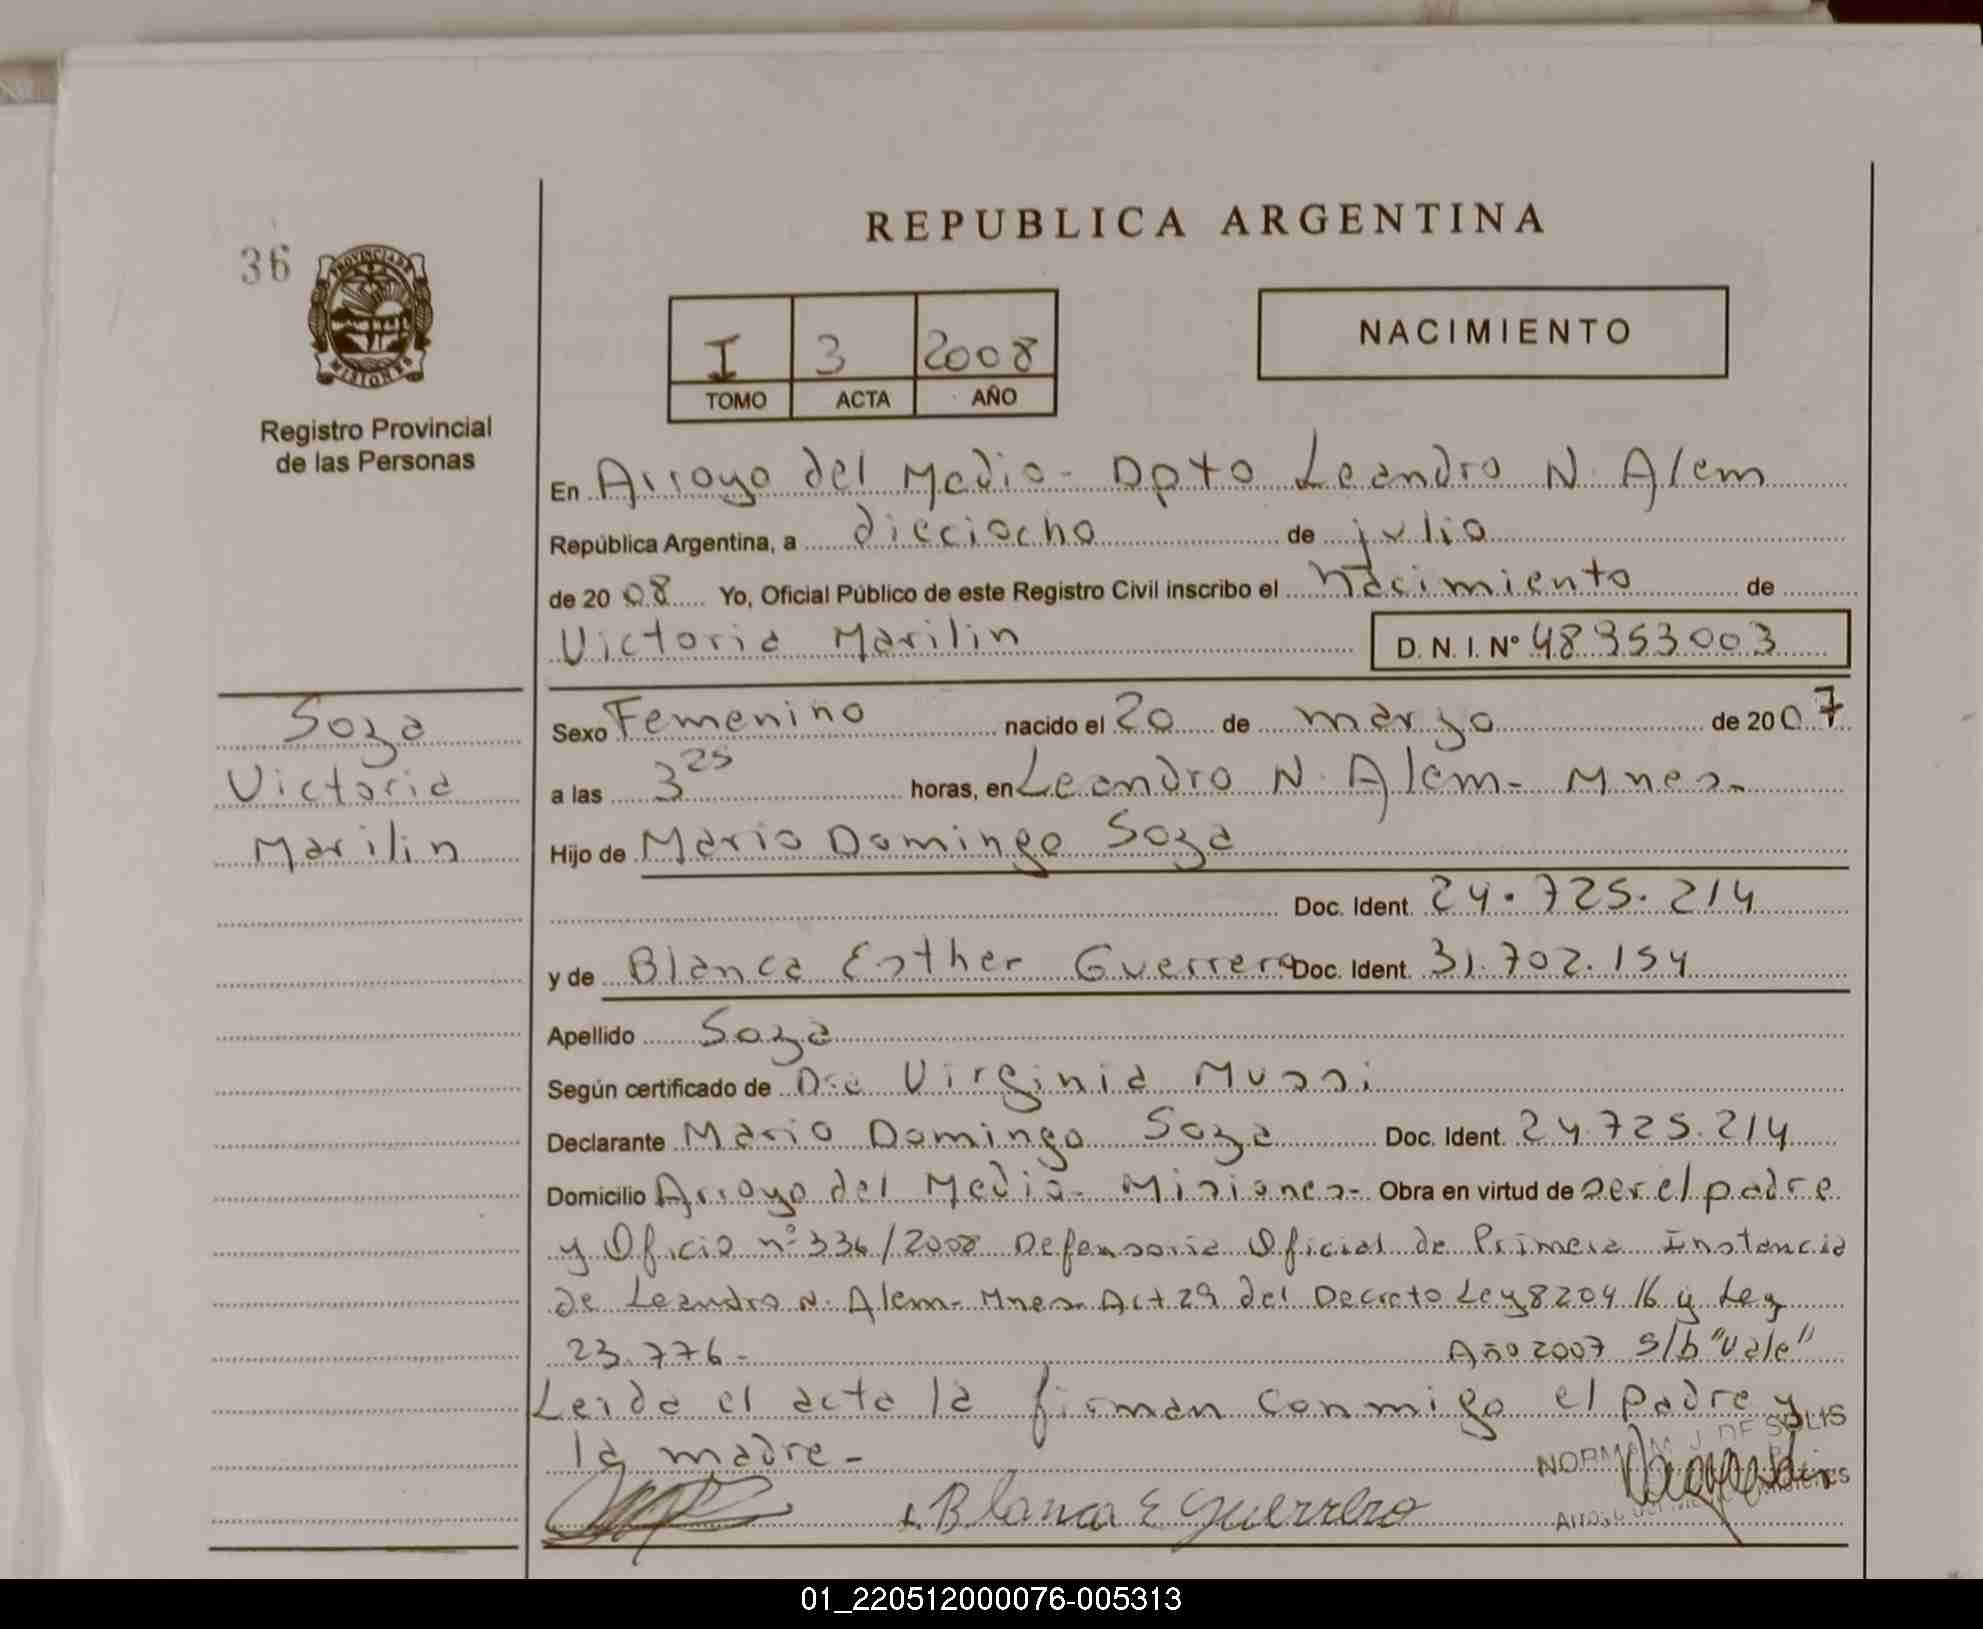 36
PROVINCIA DE
MISIONES
Registro Provincial
de las Personas
REPUBLICA ARGENTINA
I 3 2008
TOMO ACTA AÑO
NACIMIENTO
En Arroyo del Medio - Dpto Leandro N. Alem
República Argentina, a dieciocho de julio
de 2008 Yo, Oficial Público de este Registro Civil inscribo el nacimiento de
Victoria Marilin D. N. I. Nº 48953003
Soza
Victoria
Marilin
Sexo Femenino nacido el 20 de marzo de 2007
a las 3 25 horas, en Leandro N. Alem - Mnes -
Hijo de Mario Domingo Soza
Doc. Ident. 24.725.214
y de Blanca Esther Guerrero Doc. Ident. 31.702.154
Apellido Soza
Según certificado de Dra Virginia Mussi
Declarante Mario Domingo Soza Doc. Ident. 24.725.214
Domicilio Arroyo del Medio - Misiones - Obra en virtud de ser el padre
y Oficio nº 336/2008 Defensoria Oficial de Primera Instancia
de Leandro N. Alem - Mnes - Art 29 del Decreto Ley 8204/6 y Ley
23.776 - Año 2007 s/b "Vale"
Leida el acta la firman conmigo el padre y
la madre -
NORMA M. J. DE SOLIS
Blanca E Guerrero
01_220512000076-005313